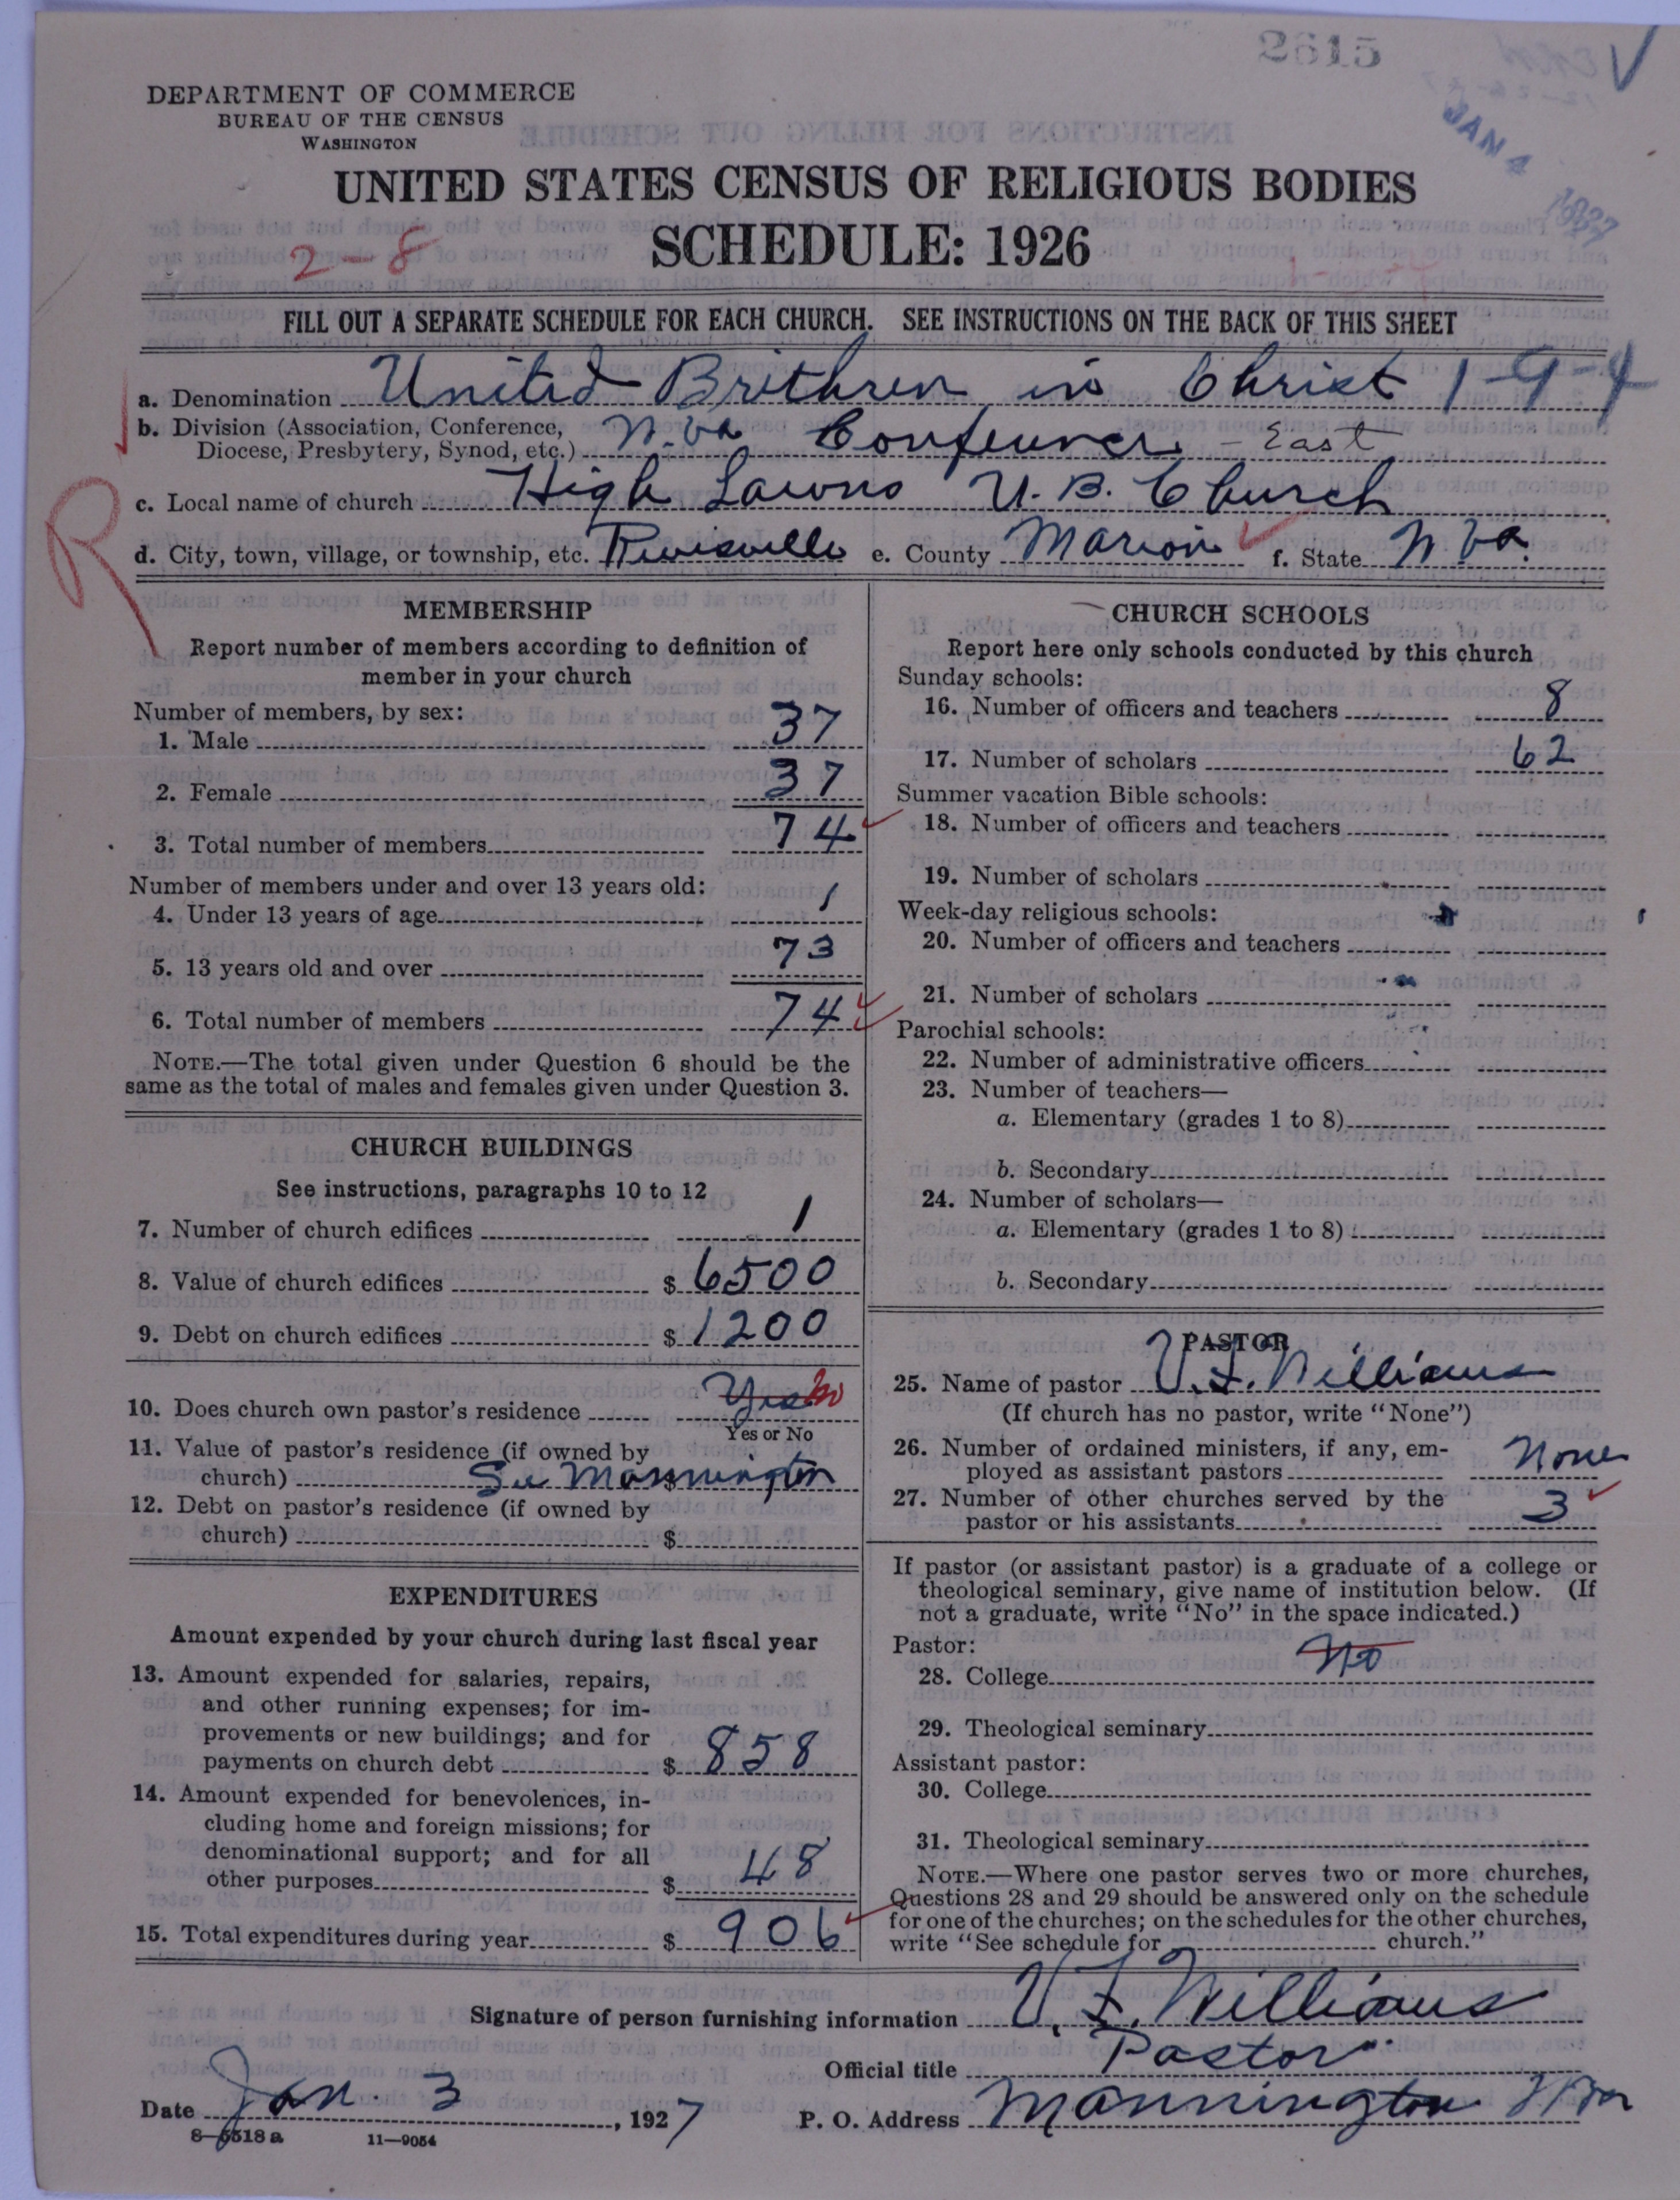 2615
JAN 4 1927
DEPARTMENT OF COMMERCE
BUREAU OF THE CENSUS
WASHINGTON
UNITED STATES CENSUS OF RELIGIOUS BODIES
SCHEDULE: 1926
2-8
FILL OUT A SEPARATE SCHEDULE FOR EACH CHURCH. SEE INSTRUCTIONS ON THE BACK OF THIS SHEET
a. Denomination United Brethren in Christ 1-9-4
b. Division (Association, Conference,
Diocese, Presbytery, Synod, etc.) W. Va Conference - East
c. Local name of church High Lawns U. B. Church
d. City, town, village, or township, etc. Rivisville e. County Marion f. State W Va.
R
MEMBERSHIP
Report number of members according to definition of
member in your church
Number of members, by sex:
1. Male 37
2. Female 37
3. Total number of members 74
Number of members under and over 13 years old:
4. Under 13 years of age 1
5. 13 years old and over 73
6. Total number of members 74
NOTE.—The total given under Question 6 should be the
same as the total of males and females given under Question 3.
CHURCH BUILDINGS
See instructions, paragraphs 10 to 12
7. Number of church edifices 1
8. Value of church edifices $ 6500
9. Debt on church edifices $ 1200
10. Does church own pastor's residence Yes No
Yes or No
11. Value of pastor's residence (if owned by
church) $ See Mannington
12. Debt on pastor's residence (if owned by
church) $
EXPENDITURES
Amount expended by your church during last fiscal year
13. Amount expended for salaries, repairs,
and other running expenses; for im-
provements or new buildings; and for
payments on church debt $ 858
14. Amount expended for benevolences, in-
cluding home and foreign missions; for
denominational support; and for all
other purposes $ 48
15. Total expenditures during year $ 906
CHURCH SCHOOLS
Report here only schools conducted by this church
Sunday schools:
16. Number of officers and teachers 8
17. Number of scholars 62
Summer vacation Bible schools:
18. Number of officers and teachers
19. Number of scholars
Week-day religious schools:
20. Number of officers and teachers
21. Number of scholars
Parochial schools:
22. Number of administrative officers
23. Number of teachers—
a. Elementary (grades 1 to 8)
b. Secondary
24. Number of scholars—
a. Elementary (grades 1 to 8)
b. Secondary
PASTOR
25. Name of pastor V. F. Williams
(If church has no pastor, write "None")
26. Number of ordained ministers, if any, em-
ployed as assistant pastors None
27. Number of other churches served by the
pastor or his assistants 3
If pastor (or assistant pastor) is a graduate of a college or
theological seminary, give name of institution below. (If
not a graduate, write "No" in the space indicated.)
Pastor:
28. College No
29. Theological seminary
Assistant pastor:
30. College
31. Theological seminary
NOTE.—Where one pastor serves two or more churches,
Questions 28 and 29 should be answered only on the schedule
for one of the churches; on the schedules for the other churches,
write "See schedule for church."
Signature of person furnishing information V. F. Williams
Official title Pastor
Date Jan. 3, 1927 P. O. Address Mannington W Va
8-5518a 11-9054